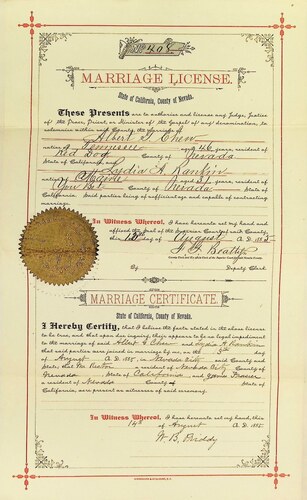 No 408
MARRIAGE LICENSE.
State of California, County of Nevada.
These Presents are to authorize and license any Judge, Justice
of the Peace, Priest, or Minister of the Gospel of any denomination, to
solemnize within said County, the marriage of
Albert G. Chew
native of Tennessee aged 46 years, resident of
Red Dog County of Nevada
State of California, and Lydia A. Rankin
native of Maine aged years, resident of
You Bet County of Nevada State of
California. Said parties being of sufficient age and capable of contracting
marriage.
In Witness Whereof, I have hereunto set my hand and
affixed the Seal of the Superior Court of said County,
this day of August A. D. 1885
Deputy Clerk
MARRIAGE CERTIFICATE.
State of California, County of Nevada.
I Hereby Certify, that I believe the facts stated in the above license
to be true, and that upon due inquiry, there appears to be no legal impediment
to the marriage of said Albert G. Chew and Lydia A. Rankin
that said parties were joined in marriage by me, on the
of August A. D. 1885, in Nevada City said County and
State; that a resident of Nevada City County of
Nevada State of California, and
a resident of Nevada County of State of
California, were present as witnesses of said ceremony.
In Witness Whereof, I have hereunto set my hand, this
14th August A. D. 1885.
W B Priddy